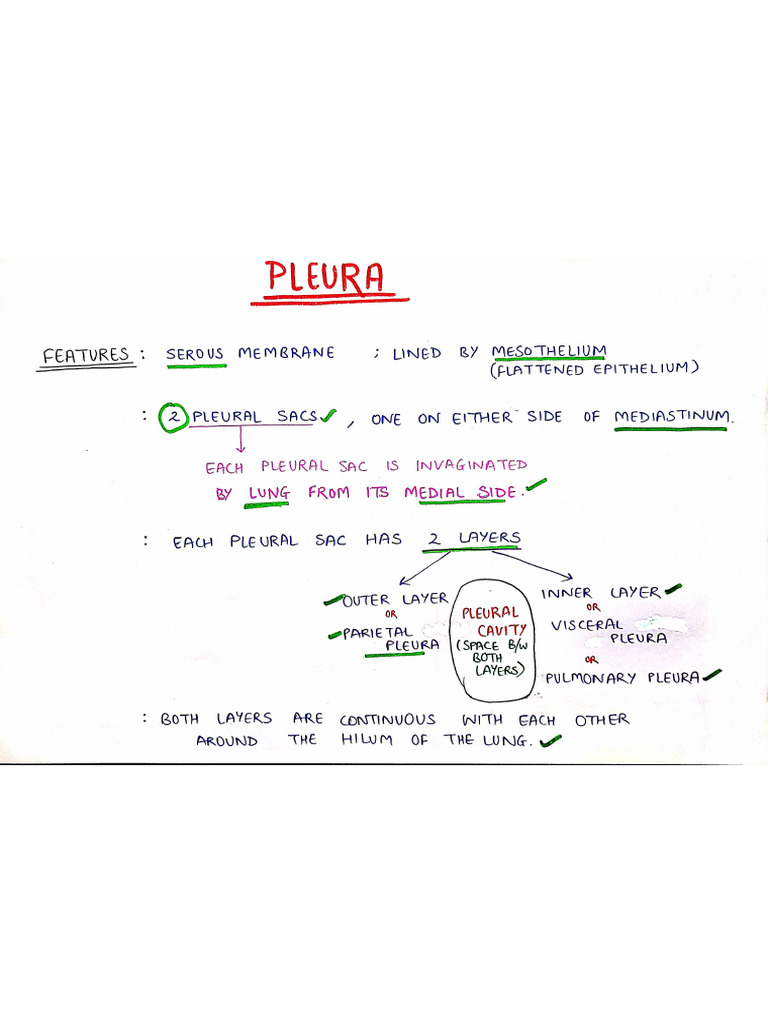 PLEURA
FEATURES : SEROUS MEMBRANE ; LINED BY MESOTHELIUM
(FLATTENED EPITHELIUM)
: 2 PLEURAL SACS , ONE ON EITHER SIDE OF MEDIASTINUM.
EACH PLEURAL SAC IS INVAGINATED
BY LUNG FROM ITS MEDIAL SIDE.
: EACH PLEURAL SAC HAS 2 LAYERS
OUTER LAYER
OR
PARIETAL
PLEURA
PLEURAL
CAVITY
(SPACE B/W
BOTH
LAYERS)
INNER LAYER
OR
VISCERAL
PLEURA
OR
PULMONARY PLEURA
: BOTH LAYERS ARE CONTINUOUS WITH EACH OTHER
AROUND THE HILUM OF THE LUNG.